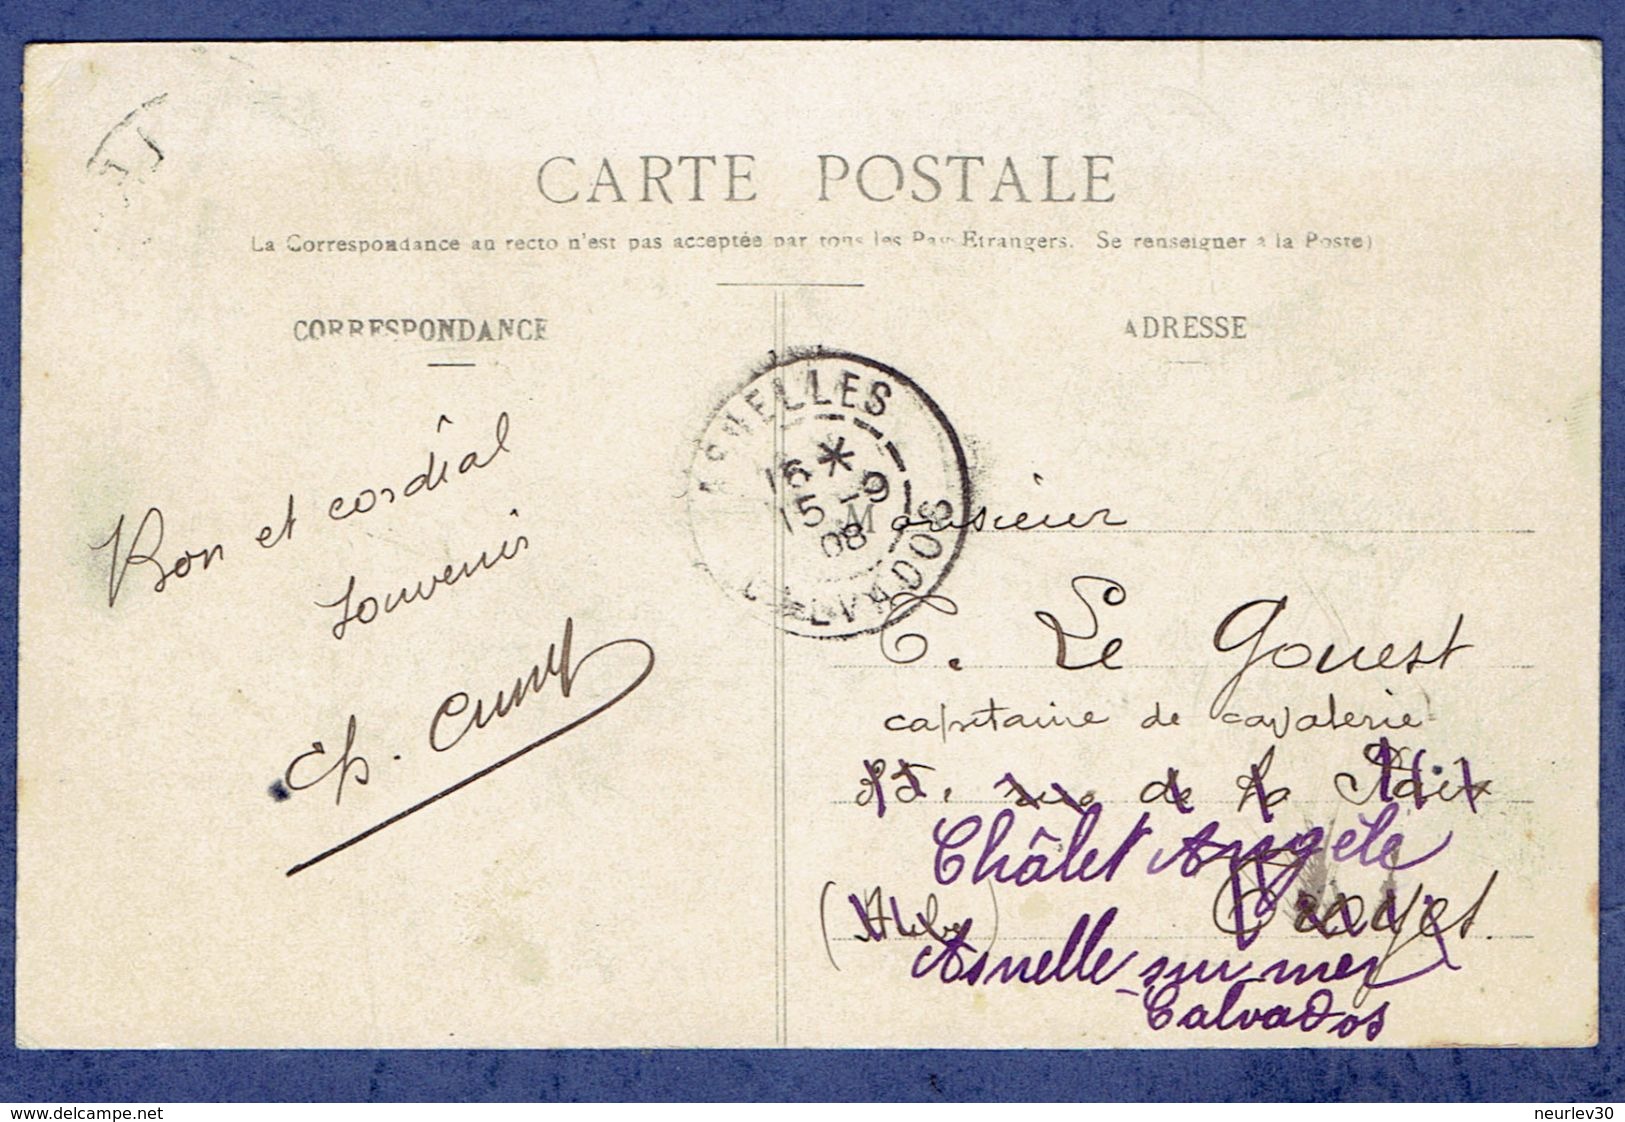 CARTE POSTALE
La Correspondance au recto n'est pas acceptée par tous les Pays Etrangers. Se renseigner à la Poste)
CORRESPONDANCE
ADRESSE
Bon et cordial
souvenir
Ch. Cuny
ASNELLES
16 * 9
15
08
CALVADOS
Monsieur
C. Le Gouest
capitaine de cavalerie
rue de la Paix
Châlet Angèle
(Aube) Troyes.
Asnelle-sur mer
Calvados
www.delcampe.net
neurlev30